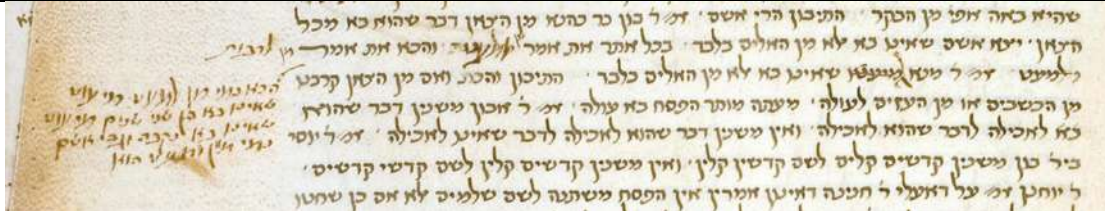 שהיא באה אפי' מן הבקר · התיבון הרי אשם · אמ' ר' בון בר כהנא מן הצאן דבר שהוא בא מכל
הצאן · יצא אשם שאינו בא לא מן האילים בלבד · בכל אתר את אמר · והכא את אמר
מן לרבות
ולמעט אמ' ר' מנא מיעטו שאינו בא לא מן האילים בלבד · התיבון והכת' ואם מן הצאן קרבנו
מן הכשבים או מן העזים לעולה · מעתה מותר הפסח בא עולה · אמ' ר' אבון משנין דבר שהוא
בא לאכילה לדבר שהוא לאכילה · ואין משנין דבר שהוא לאכילה לדבר שאינו לאכילה · אמ' ר' יוסי
ביר' בון משנין קדשים קלים לשם קדשין קלין · ואין משנין קדשים קלין לשם קדשי קדשים ·
ר' יוחנן אמ' על דאעלי ר' חנינה דאינון אמרין אין הפסח משתנה לשם שלמים לא אם כן שחטו
הכא נמי מן למעט
שאינו בא בן שתי שנים
שאינו בא נקבה וגבי אשם
הוא